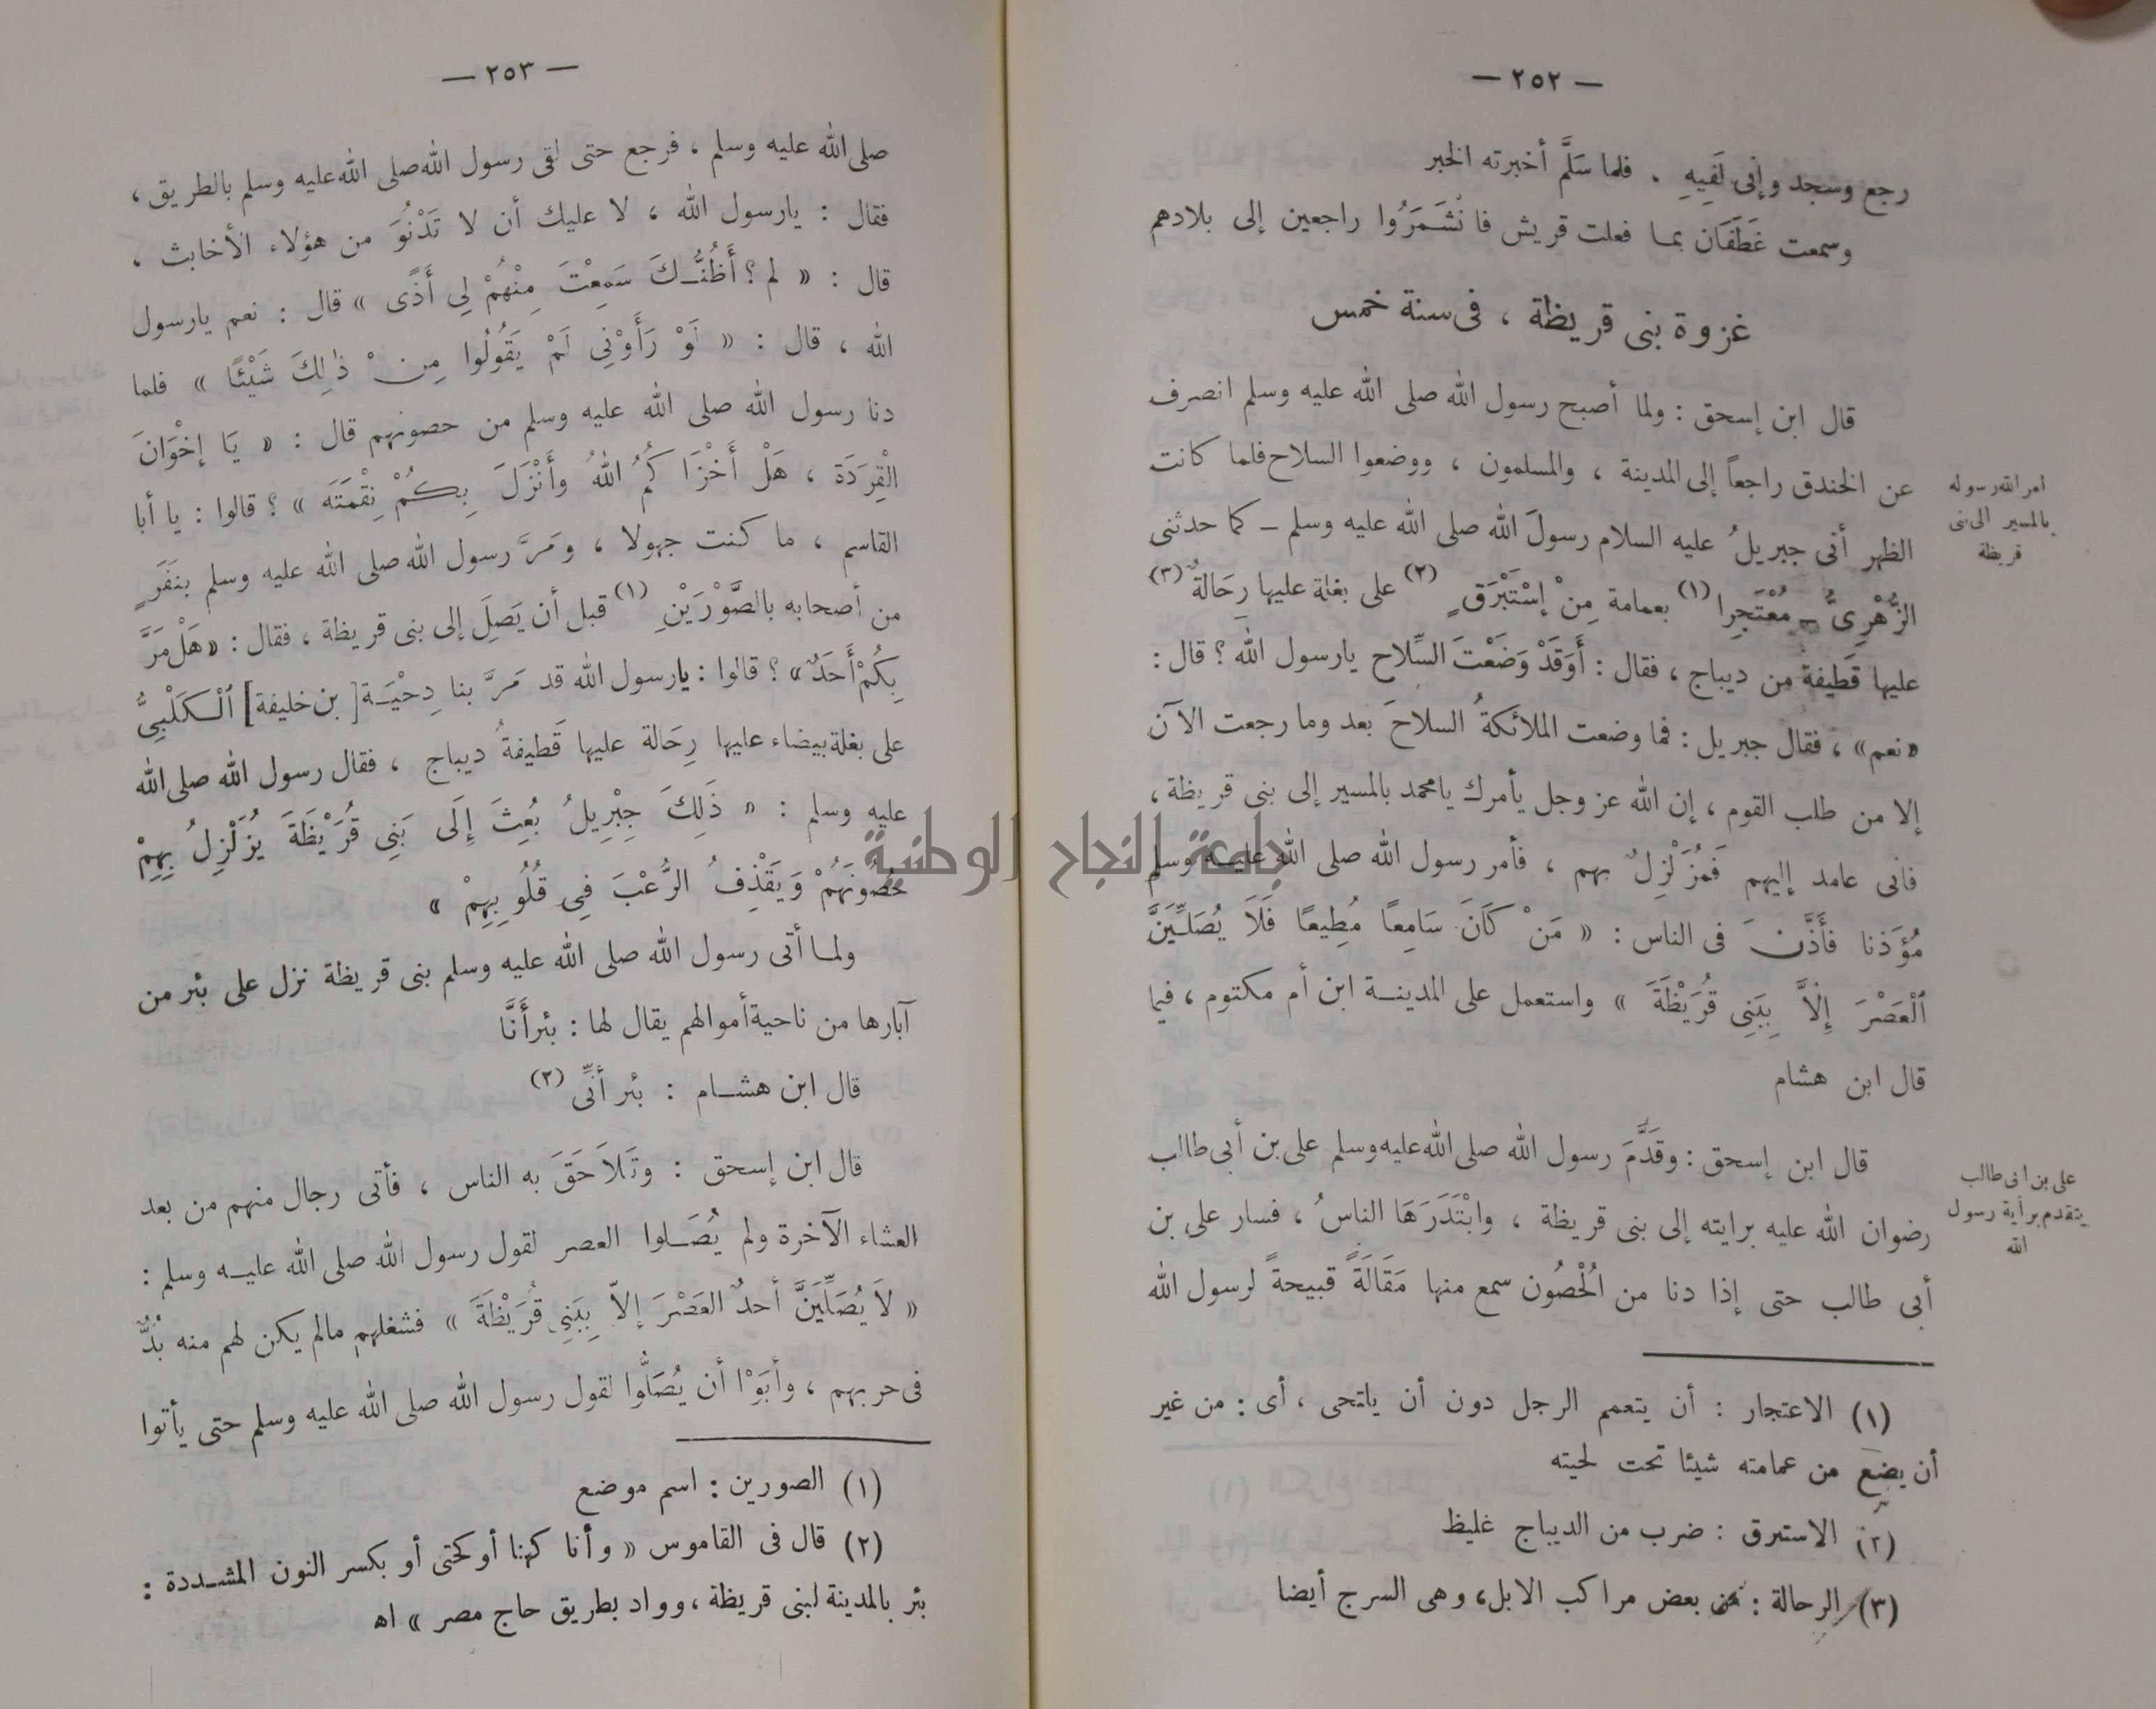 — ٢٥٢ —
رجع وسجد وإنى لَفِيهِ . فلما سَلَّمَ أخبرته الخبر
وسمعت غَطَفَان بمـا فعلت قريش فانْشَمَرُوا راجعين إلى بلادهم
غزوة بنى قريظة ، فى سنة خمس
قال ابن إسحق : ولما أصبح رسول الله صلى الله عليه وسلم انصرف
عن الخندق راجعاً إلى المدينة ، والمسلمون ، ووضعوا السلاح فلما كانت
الظهر أتى جبريلُ عليه السلام رسولَ الله صلى الله عليه وسلم – كما حدثنى
الزُّهْرِىُّ – مُعْتَجِرا (١) بعمامة مِنْ إسْتَبْرَقٍ (٢) على بغلة عليها رِحَالةٌ (٣)
عليها قَطِيفة من ديباج ، فقال : أَوَقَدْ وَضَعْتَ السِّلاح يارسول الله ؟ قال :
« نعم » ، فقال جبريل : فما وضعت الملائكةُ السلاحَ بعد وما رجعت الآن
إلا من طلب القوم ، إن الله عز وجل يأمرك يامحمد بالمسير إلى بنى قريظة ،
فانى عامد إليهم فَمُزَلْزِلٌ بهم ، فأمر رسول الله صلى الله عليـه وسلم
مُؤَذنا فأَذَّنَ فى الناس : « مَنْ كَانَ سَامِعًا مُطِيعًا فَلَا يُصَلِّيَنَّ
ٱلْعَصْرَ إِلاَّ بِبَنِى قُرَيْظَةَ » واستعمل على المدينــة ابن أم مكتوم ، فيما
قال ابن هشام
قال ابن إسحق : وقَدَّمَ رسول الله صلى الله عليه وسلم على بن أبى طالب
رضوان الله عليه برايته إلى بنى قريظة ، وابْتَدَرَهَا الناسُ ، فسار على بن
أبى طالب حتى إذا دنا من الْحُصُون سمع منها مَقَالَةً قبيحةً لرسول الله
امر الله رسوله
بالمسير الى بنى
قريظة
على بن ابى طالب
يتقدم براية رسول
الله
(١) الاعتجار : أن يتعمم الرجل دون أن يلتحى ، أى : من غير
أن يضع من عمامته شيئا تحت لحيته
(٢) الاستبرق : ضرب من الديباج غليظ
(٣) الرحالة : من بعض مراكب الابل، وهى السرج أيضا
— ٢٥٣ —
صلى الله عليه وسلم ، فرجع حتى لقى رسول الله صلى الله عليه وسلم بالطريق ،
فقال : يارسول الله ، لا عليك أن لا تَدْنُوَ من هؤلاء الأخابث ،
قال : « لم ؟ أَظُنُّـكَ سَمِعْتَ مِنْهُمْ لِى أَذًى » قال : نعم يارسول
الله ، قال : « لَوْ رَأَوْنِى لَمْ يَقُولُوا مِنْ ذٰلِكَ شَيْئًا » فلما
دنا رسول الله صلى الله عليه وسلم من حصونهم قال : « يَا إخْوَانَ
الْقِرَدَة ، هَلْ أَخْزَاكُمُ اللهُ وأَنْزَلَ بِكُمْ نِقْمَتَه » ؟ قالوا : يا أبا
القاسم ، ما كنت جهولا ، ومَرَّ رسول الله صلى الله عليه وسلم بنَفَرٍ
من أصحابه بالصَّوْرَيْنِ (١) قبل أن يَصِلَ إلى بنى قريظة ، فقال : « هَلْ مَرَّ
بِكُمْ أَحَدٌ » ؟ قالوا : يارسول الله قد مَرَّ بنا دِحْيَـة [ بن خليفة ] ٱلْـكَلْبِىُّ
على بغلة بيضاء عليها رِحَالة عليها قَطيفةُ ديباج ، فقال رسول الله صلى الله
عليه وسلم : « ذَلِكَ جِبْرِيلُ بُعِثَ إلَى بَنِى قُرَيْظَةَ يُزَلْزِلُ بِهِمْ
حُصُونَهُمْ وَيَقْذِفُ الرُّعْبَ فِى قُلُوبِهِمْ »
ولمـا أتى رسول الله صلى الله عليه وسلم بنى قريظة نزل على بئر من
آبارها من ناحية أموالهم يقال لها : بئر أَنَّا
قال ابن هشــام : بئر أنِّى (٢)
قال ابن إسحق : وتَلاَحَقَ به الناس ، فأتى رجال منهم من بعد
العشاء الآخرة ولم يُصَــلوا العصر لقول رسول الله صلى الله عليــه وسلم :
« لاَ يُصَلِّيَنَّ أحدٌ العَصْرَ إلاّ بِبَنِى قُرَيْظَةَ » فشغلهم مالم يكن لهم منه بُدٌّ
فى حربهم ، وأبَوْا أن يُصَلُّوا لقول رسول الله صلى الله عليه وسلم حتى يأتوا
(١) الصورين : اسم موضع
(٢) قال فى القاموس « وأنا كهنا أو كحتى أو بكسر النون المشــددة :
بئر بالمدينة لبنى قريظة ، وواد بطريق حاج مصر » اه
جامعة النجاح الوطنية